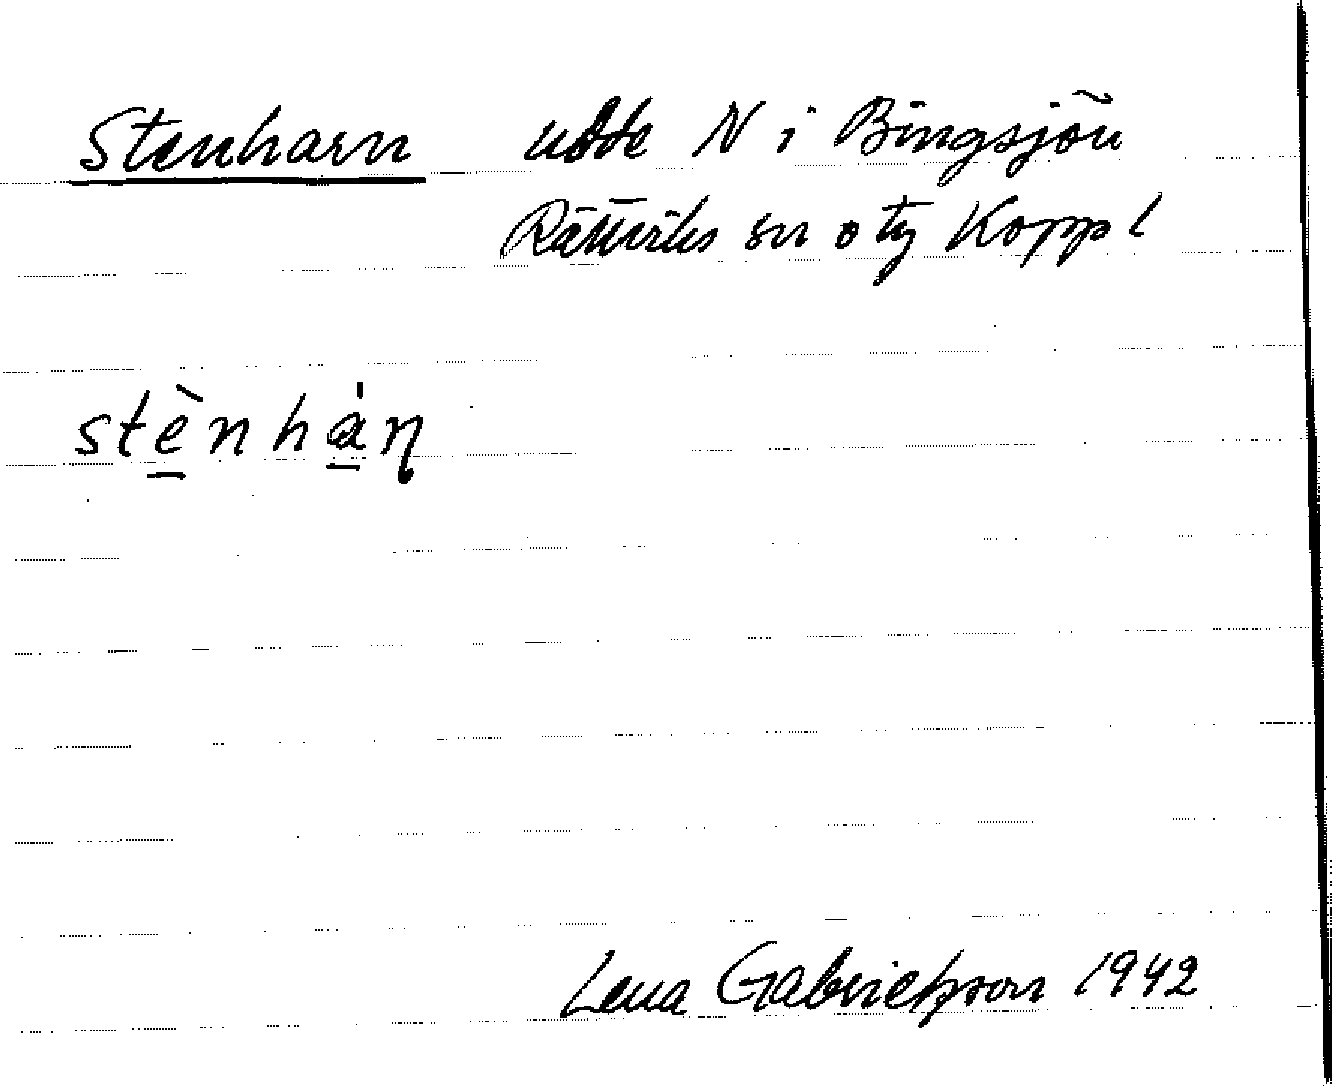 Stenharn udde N i Bingsjön
Rättviks sn o tg Koppl
stènhàn̩
Lena Gabrielsson 1942